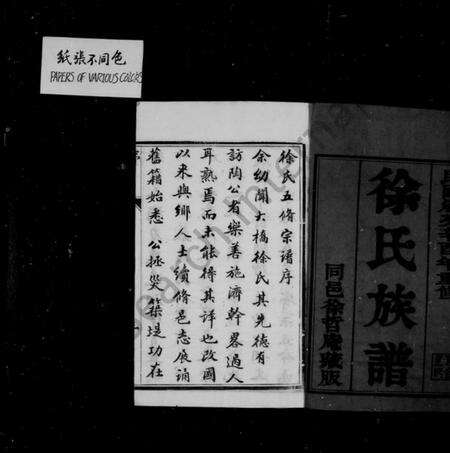 紙張不同色
PAPERS OF VARIOUS COLORS
徐氏族譜
同邑徐哲慶藏版
徐氏五脩宗譜序
余幼聞大橋徐氏其先德有
訪陶公者樂善施濟幹畧過人
耳熟焉而未能得其詳也改國
以来與鄉人士續脩邑志展誦
舊籍始悉 公拯災築堤功在